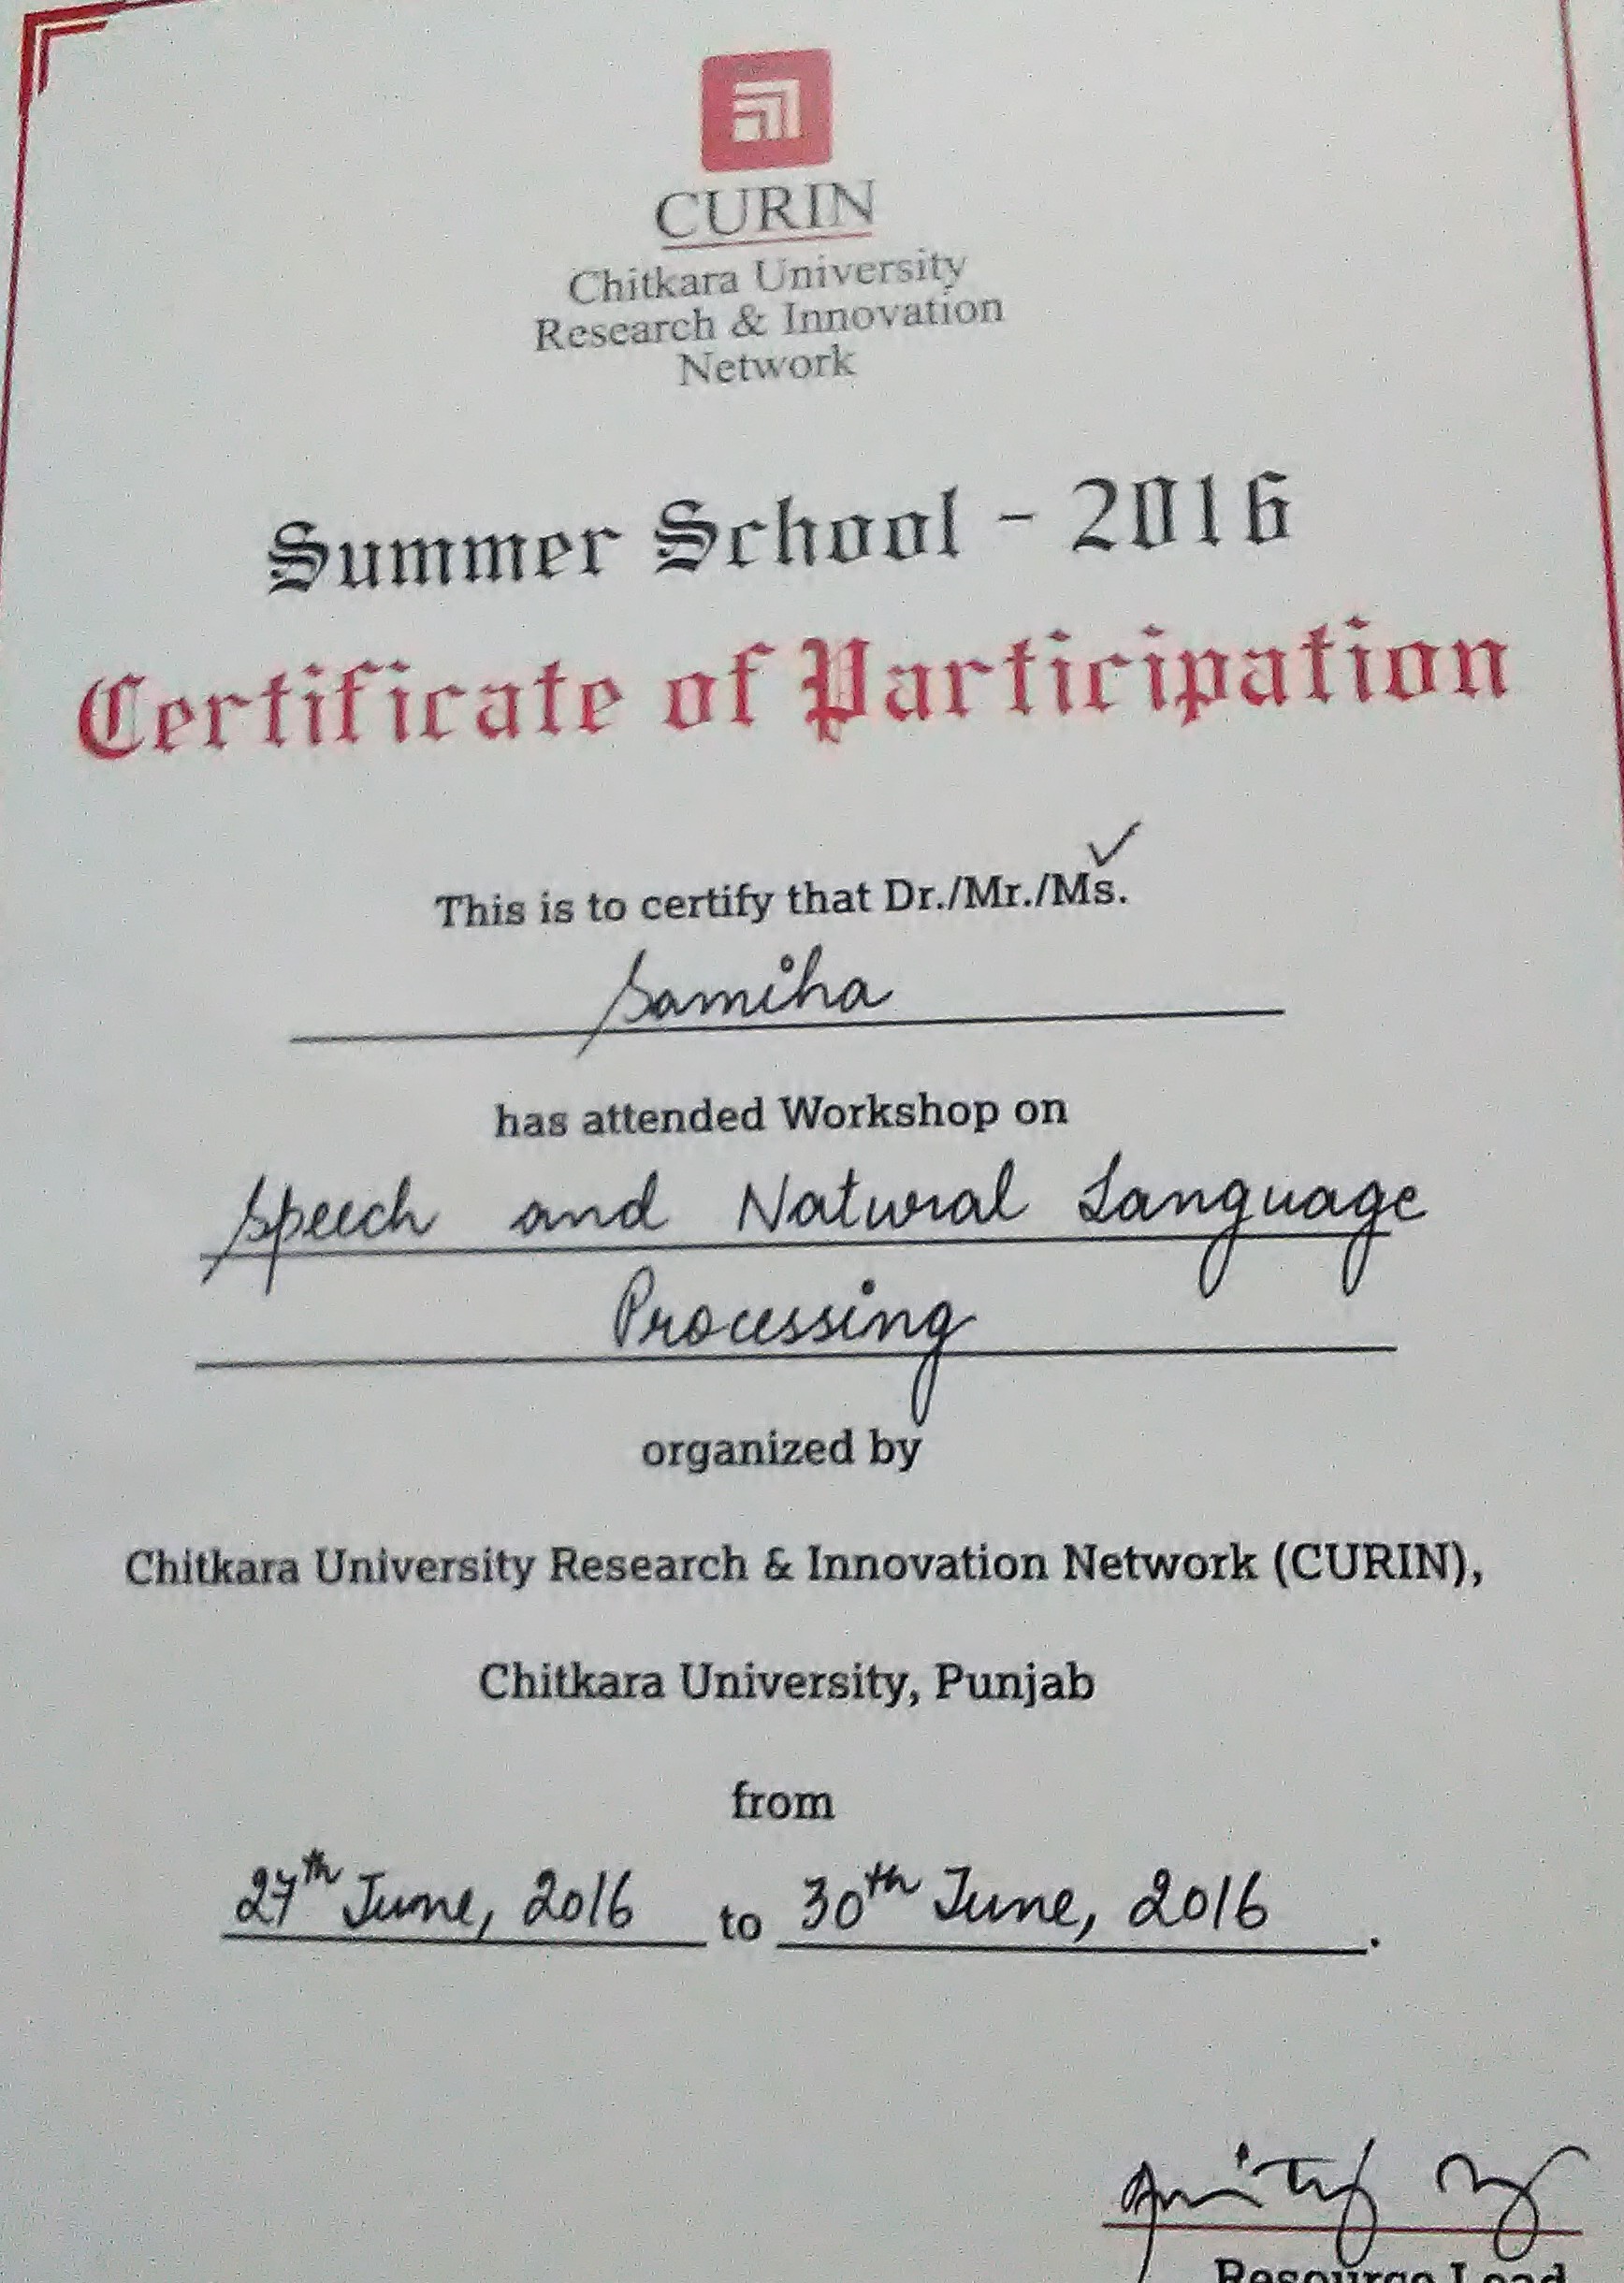 CURIN
Chitkara University
Research & Innovation
Network
Summer School - 2016
Certificate of Participation
This is to certify that Dr./Mr./Ms. ✓
Samiha
has attended Workshop on
Speech and Natural Language
Processing
organized by
Chitkara University Research & Innovation Network (CURIN),
Chitkara University, Punjab
from
27th June, 2016 to 30th June, 2016.
Resource Lead